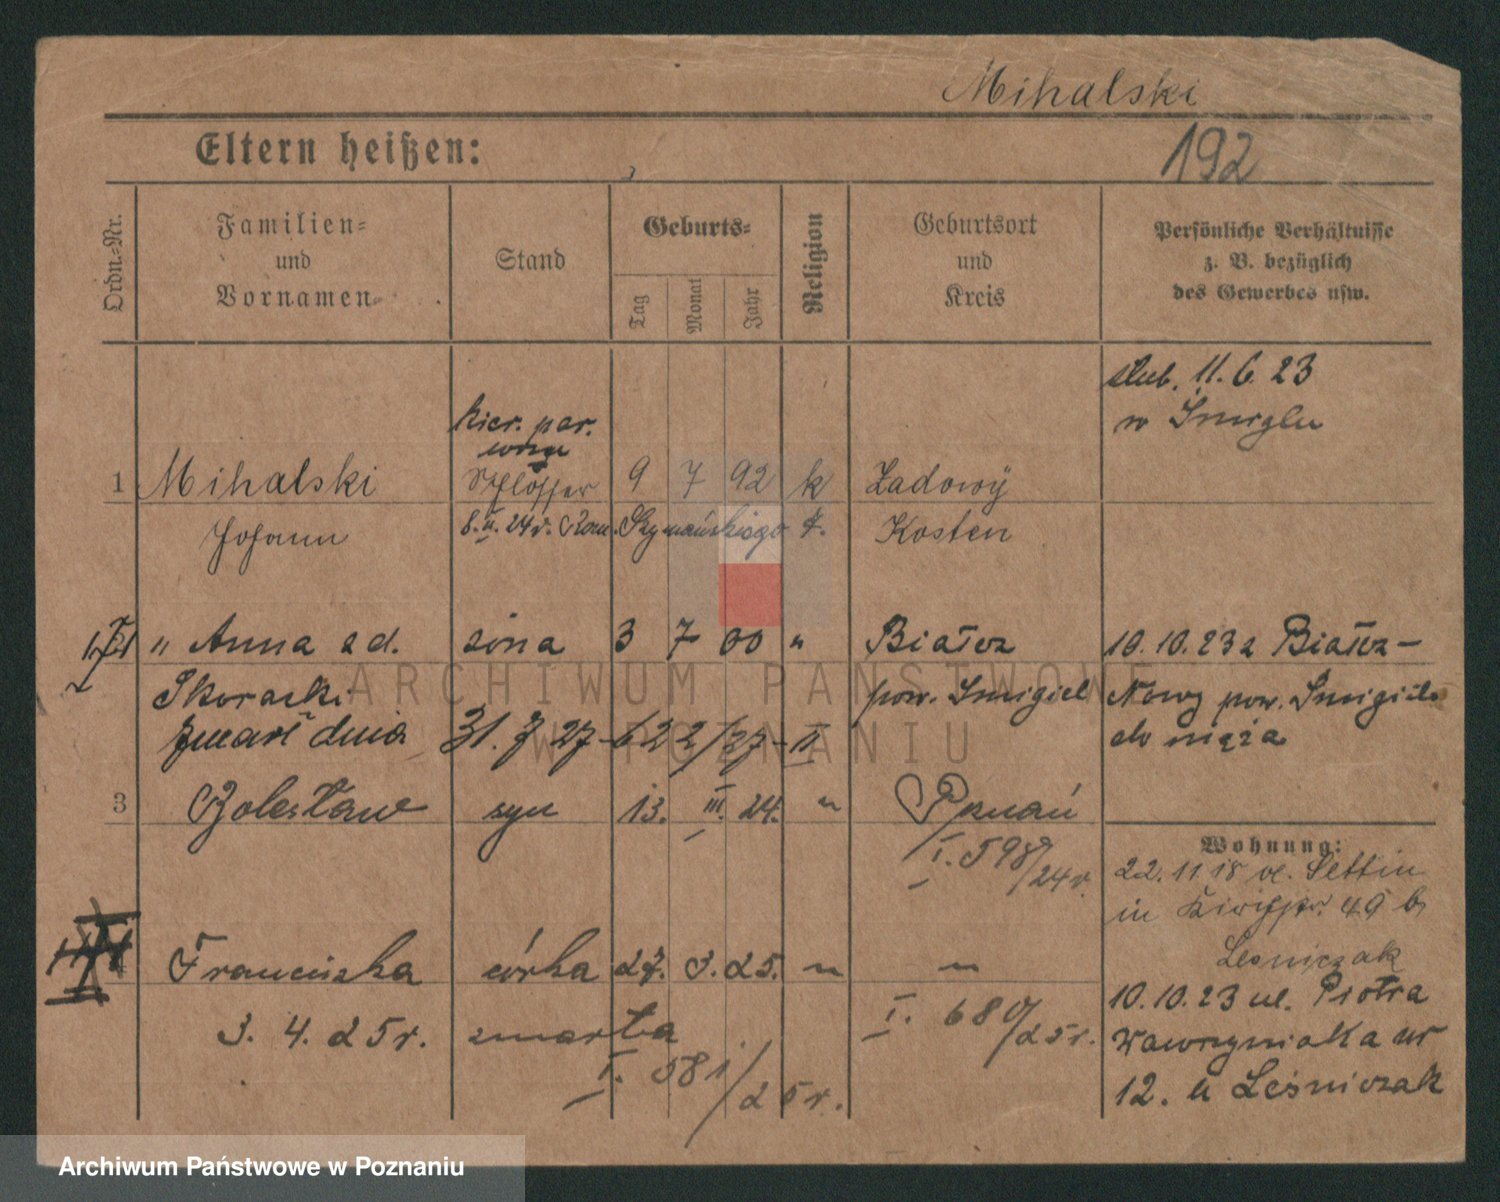 Mihalski
Eltern heißen:
192
Ordn.-Nr.
Familien-
und
Vornamen
Stand
Geburts-
Tag
Monat
Jahr
Religion
Geburtsort
und
Kreis
Persönliche Verhältnisse
z. B. bezüglich
des Gewerbes usw.
ślub. 11. 6. 23
w Śmiglu
kier. par.
1 Mihalski Schlosser 9 7 92 k Zadowy
Johann 8. II. 24 r. Rom. Szymańskiego Kosten
" Anna z d. żona 3 7 00 " Białcz 10.10.23 z Białcz-
Skoracki pow. Śmigiel Nowy pow. Śmigiel
zmarł dnia 31. 7 27 - 622/27 - II do męża
3 Bolesław syn 13. III. 24. " Poznań
I. 598/24 r.
Wohnung:
22.11.18 v. Settin
in 49 b
Lesniczak
4 Franciszka córka 27. 3. 25. " "
3. 4. 25 r. zmarła I. 680/25 r.
I. 581/25 r.
10.10.23 ul. Piotra
Wawrzyniaka nr
12. u Leśniczak
ARCHIWUM PAŃSTWOWE
W POZNANIU
Archiwum Państwowe w Poznaniu